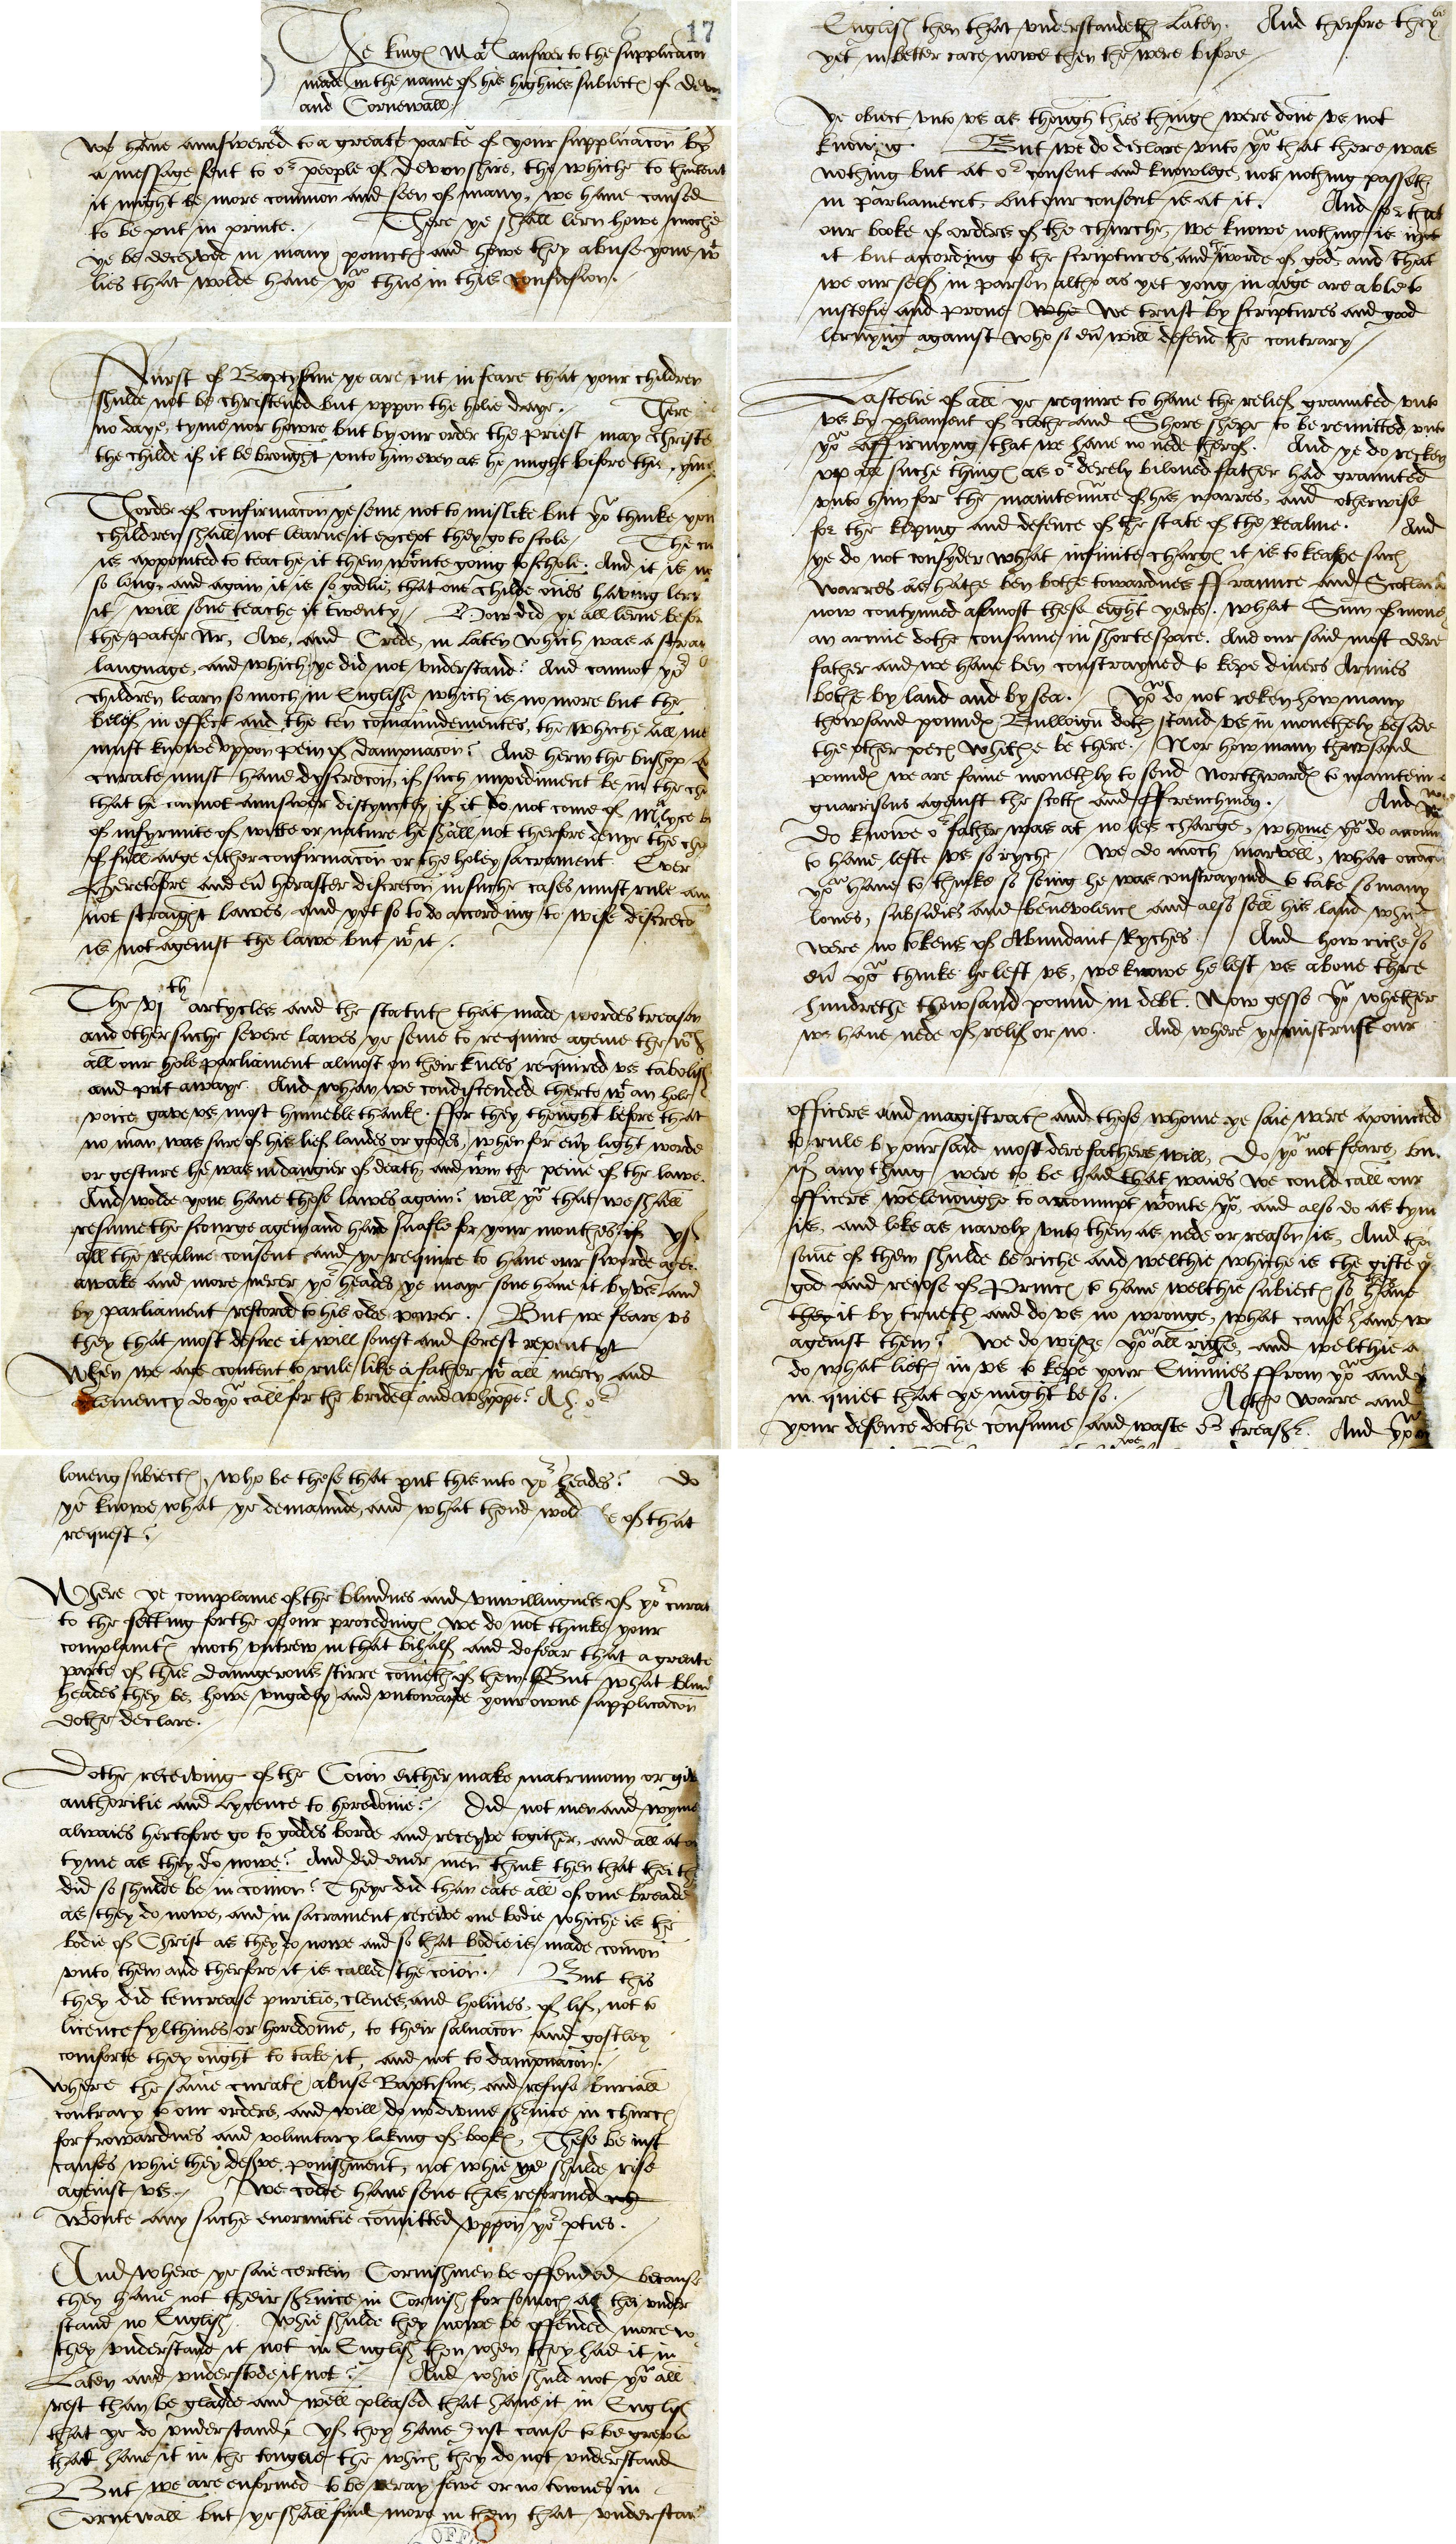 17
The kinges Ma^tes answer to the supplicacon
made in the name of his highnes subiectes of Devon
and Cornewall
We have aunswered to a greate parte of your supplicacon by
a message sent to o^r people of Devonshire, the whiche to thintent
it might be more common and seen of many, we have caused
to be put in printe. There ye shall lern howe moche
ye be deceyved in many poinctes and howe they abuse youe w^t
lies that wolde have yo^u thus in this confusion.
Furst of Baptysme ye are put in feare that your children
shulde not be christened but uppon the holie daye. There
no daye, tyme nor howre but by our order the priest may christe
the childe if it be brought unto him even as he might bifore this tyme
Thorder of confirmacon ye seme not to mislike but yo^u thinke your
children shall not learne it except they go to scole. The cu
is appointed to teache it them w^toute going to schole. And it is no
so long, and again it is so godlie, that one childe ones having lern
it will sone teache it twenty. How did ye all lerne befor
the pater nr, Ave, and Crede, in Laten which was a straun
language, and which ye did not understand? And cannot yo^r
children learn so moch in Englisshe which is no more but the
belefe in effect and the ten comaundementes, the whiche all me
must knowe uppon pein of dampnacon? And herin the bushop
curate must have dyscrecon, if such impediment be in the ch
that he cannot aunswer distynctly if it do not come of malyce b
of infyrmite of witte or nature he shall not therfore denye the ch
of full aege either confirmacon or the holey sacrament. Ever
heretofore and ev^r herafter discrecon in suche cases must rule an
not straight lawes, and yet so to do according to wise discreco
is not against the lawe but w^t it.
The vj^th artycles and the statutes that made wordes treason
and other suche severe lawes ye seme to require againe the w^ch
all our hole parliament almost on their knees required us tabolish
and put awaye. And whan we condiscended therto w^t an hole
voice gave us most humeble thankes. ffor they thought before that
no man was sure of his lief landes or goodes, when for ev^ry light worde
or gesture he was in dangier of death, and w^tin the peine of the lawe.
And wolde youe have those lawes again? will yo^u that we shall
resume the scourge again and hard snafle for your mouthes? if
all the Realme consent and ye require to have our sworde agein
awake and more nerer yo^r heades ye maye sone have it by us and
by parliament restored to his olde power. But we feare us
they that most desire it will sonest and sorest repent yt
When we are content to rule like a father w^t all mercy and
clemency do yo^u call for the bridell and whyppe? Ah, o^r
loveng subiectes, who be these that put this into yo^r heades? Do
ye knowe what ye demaunde, and what thend wold be of that
request?
Where ye complaine of the blindnes and unwillingnes of yo^r curat
to the setting forthe of our procedinges we do not thinke your
complaintes moch untrew in that bihalf and do fear that a greate
parte of this daungerous stirre cometh of them. But what blind
heades they be, howe ungodly and untowarde your owne supplicacon
dothe declare.
Dothe receiving of the Coion either make matrimony or give
authoritie and lycence to horedome? Did not men and wyme
alwaies hertofore go to goddes borde and receyve togither, and all at on
tyme as they do nowe? And did ever men think then that thei th
did so shulde be in comon? Theye did than eate all of one breade
as they do nowe, and in sacrament receive one bodie whiche is the
bodie of Christ as they do nowe and so that bodie is made comon
unto them and therfore it is called the coion. But this
they did tencrease puritie, clenes, and holines of lif, not to
licence fylthines or horedome, to their salvacon and gostley
comforte they ought to take it, and not to dampnacon.
Where the same curates abuse Baptisme, and refuse buriall
contrary to our orders, and will do no divine service in church
for frowardnes and voluntary laking of bookes, These be iust
causes whie they deserve ponishment, not whie ye shulde rise
against us. We colde have sene this reformed wh
w^toute any suche enormitie comitted uppon yo^r pties.
And where ye saie certein Cornishmen be offended because
they have not their service in Cornish for somoch as thei under
stand no English. Whie shulde they nowe be offended more w
they understand it not in English then when they had it in
Laten and understode it not? And whie shuld not yo^u all
rest than be gladde and well pleased that have it in English
that ye do understand? Yf they have iust cause to be greved
that have it in the tongue the which they do not understand
But we are enformed to be veray fewe or no townes in
Cornewall but ye shall find more in them that understan
English then that understandeth Laten. And therfore they be
yet in better cace nowe then the were bifore
Ye obiect unto us as though thies thinges were done us not
knowing. But we do declare unto yo^u that there was
nothing but at o^r consent and knowlege, nor nothing passeth
in parliament, but our consent is at it. And for that
our booke of orders of the churche, we knowe nothing is in
it but according to the scriptures and the worde of god, and that
we our self in parson altho as yet yong in aege are able to
iustefie and prove Whe We trust by scriptures and good
lernyng against who so ev^r will defend the contrary
Lastelie of all ye require to have the relief graunted unto
us by pliament of clothe and Shore shepe to be remitted unto
yo^u affirmyng that we have no nede therof. And ye do recken
up all suche thinges as o^r derely biloved father had graunted
unto him for the maintenaunce of his warres, and otherwise
for the keping and defence of the state of the Realme. And
ye do not consyder what infinite charges it is to keape such
warres as hathe ben bothe towardnes ffraunce and Scotland
now contynued almost these eight yeres. what Sum of mone
an armie dothe consume in shorte space. And our said most dere
father and we have ben constrayned to kepe divers Armies
bothe by land and by sea. Yo^u do not reken how many
thowsand poundes Bulloign doth stand us in monethely beside
the other peces whiche be there. Nor how many thowsand
poundes we are faine monethly to send Northwardes to maintein
guarrisons against the scottes and ffrenchmen. And we
do knowe o^r father was at no les charge, whome yo^u do accom
to have lefte us so ryche. We do moch marvell, what occacon
yo^u have to thinke so seing he was constrayned to take so many
lones, subsidies and benevolences and also sell his land whi
were no tokens of Abundant Ryches. And how riche so
ev^r yo^u thinke he left us, we knowe he left us above thre
hundrethe thowsand pound in debt. Now gesse yo^u whether
we have nede of relif or no. And where ye mistrust our
officers and magistrates and those whome ye saie were apointed
to rule by our said most dere fathers will, Do yo^u not feare, bu
if any thing were to be had that waies we could call our
officers well enoughe to accompt w^toute yo^u, and also do as tym
is, and loke as narrely unto them as nede or reason is, And tho
some of them shulde be riche and welthie whiche is the gifte of
god and reiose of Princes to have welthie subiectes so they have
they it by trueth and do us no wronge, what cause have we
against them? We do wishe yo^u all riche, and welthie a
do what lieth in us to kepe your Enimies ffrom yo^u and
in quiet that ye might be so. Altho warre and
your defence dothe consume and waste o^r treasure. And yo^u